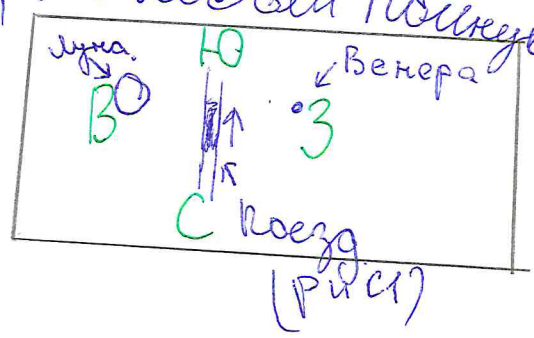 Луна Ю Венера
В З
С Поезд
(Рис1)